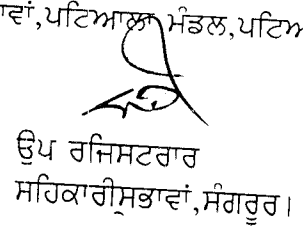 ਾਵਾਂ,ਪਟਿਆਲਾ ਮੰਡਲ,ਪਟਿਅ
ਉਪ ਰਜਿਸਟਰਾਰ
ਸਹਿਕਾਰੀਸਭਾਵਾਂ,ਸੰਗਰੂਰ।